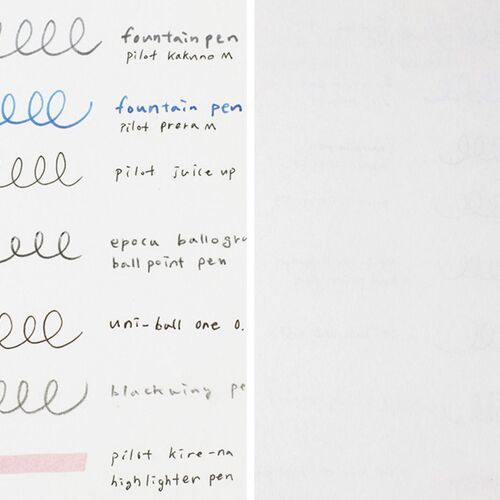 fountain pen
pilot kakuno M
fountain pen
pilot prera M
pilot juice up
epoca
ball point pen
uni-ball one 0.
blackwing
pilot kire-na
highlighter pen